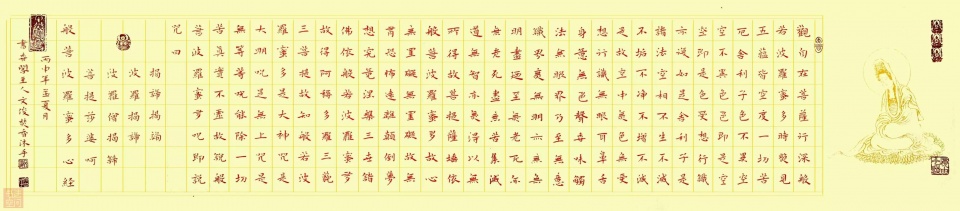 觀自在菩薩行深般
若波羅蜜多時照見
五蘊皆空度一切苦
厄舍利子色不異空
空不異色色即是空
空即是色受想行識
亦復如是舍利子是
諸法空相不生不滅
不垢不淨不增不減
是故空中無色無受
想行識無眼耳鼻舌
身意無色聲香味觸
法無眼界乃至無意
識界無無明亦無無
明盡乃至無老死亦
無老死盡無苦集滅
道無智亦無得以無
所得故菩提薩埵依
般若波羅蜜多故心
無罣礙無罣礙故無
有恐怖遠離顛倒夢
想究竟涅槃三世諸
佛依般若波羅蜜多
故得阿耨多羅三藐
三菩提故知般若波
羅蜜多是大神咒是
大明咒是無上咒是
無等等咒能除一切
苦真實不虛故說般
若波羅蜜多咒即說
咒曰
揭諦揭諦
波羅揭諦
波羅僧揭諦
菩提莎婆呵
般若波羅蜜多心經
丙申年孟夏月
主人文俊敬書沐手